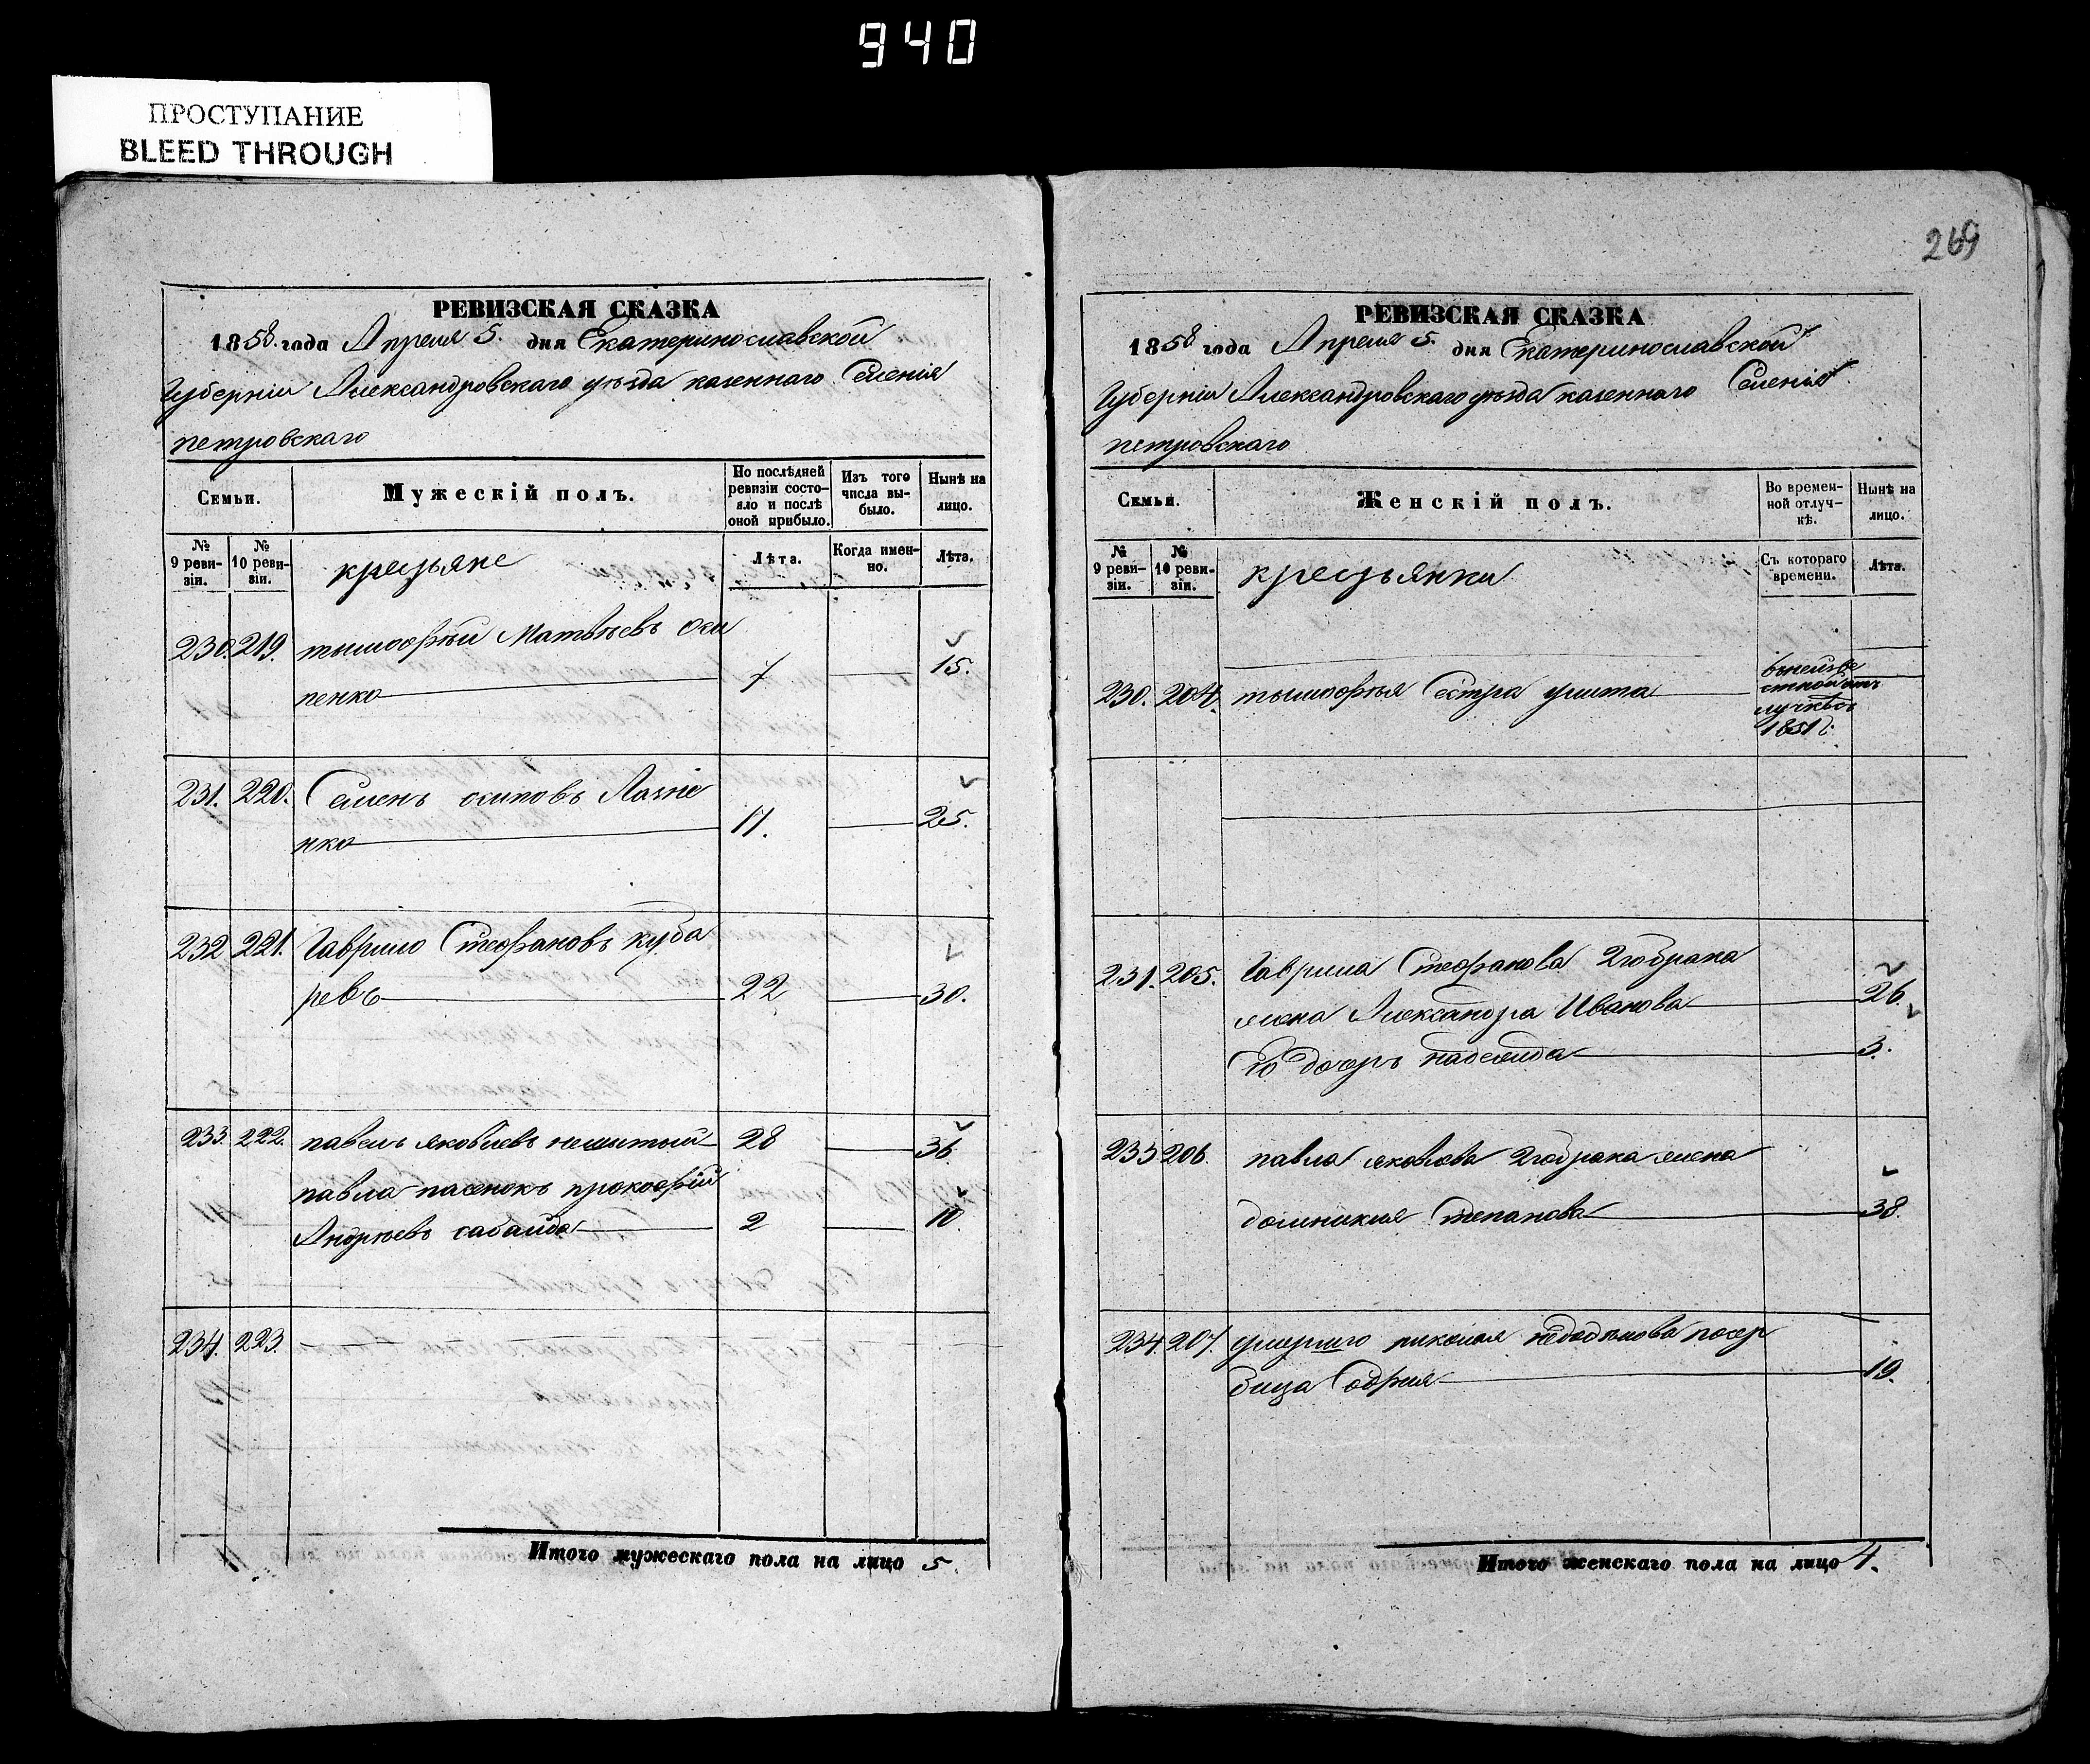 940
ПРОСТУПАНИЕ
BLEED THROUGH
РЕВИЗСКАЯ СКАЗКА
1858 года Апреля 5. дня Екатеринославской
Губерніи Александровскаго уѣзда казеннаго Селенія
петровскаго
Семьи.
Мужескій полъ.
По послѣдней ревизіи состояло и послѣ оной прибыло.
Изъ того числа выбыло.
Нынѣ на лицо.
№ 9 ревизіи.
№ 10 ревизіи.
крестьяне
Лѣта.
Когда именно.
Лѣта.
230. 219. тымофѣй Матвѣевъ Оси
пенко 7 15.
231. 220. Семенъ осиповъ
нко 17. 25.
232 221. Гаврило Стефановъ куба
ревъ 22 30.
233. 222. павелъ яковлевъ 28 36.
павла пасенокъ прокофій
Андреевъ 2 10
234. 223.
Итого мужескаго пола на лицо 5.
269
РЕВИЗСКАЯ СКАЗКА
1858 года Апреля 5. дня Екатеринославской
Губерніи Александровскаго уѣзда казеннаго Селенія
петровскаго
Семьи.
Женскій полъ.
Во временной отлучкѣ.
Нынѣ на лицо.
№ 9 ревизіи.
№ 10 ревизіи.
крестьянки
Съ котораго времени.
Лѣта.
230. 204. тымофѣя Сестра улита
внеизве
стной от
лучкѣ съ
1851 г.
231. 205. Гаврила Стефанова 2го брака
жена Александра Иванова 26.
Его дочерь надежда 3.
233 206. павла яковлева 2го брака жена
домникия Степанова 38.
234. 207. умершаго николая
София 19.
Итого женскаго пола на лицо 4.